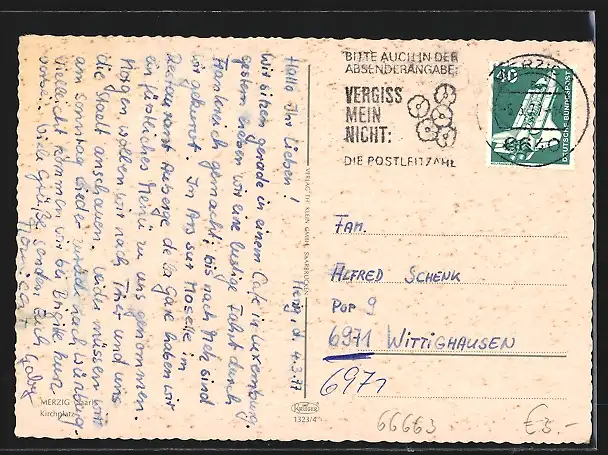 Merzig, d. 4.3.77
Hallo Ihr Lieben!
Wir sitzen gerade in einem Café in Luxemburg,
gestern haben wir eine lustige Fahrt durch
Frankreich gemacht; bis nach Metz sind
wir gekommt. In Ars sur Moselle im
Restaurant Auberge de la Gare haben wir
ein fürstliches Menü zu uns genommen.
Morgen wollen wir nach Trier und uns
die Stadt anschauen. Leider müssen wir
am Sonntag wieder zurück nach Würzburg.
Vielleicht kommen wir bei Birgitt kurz
vorbei. Viele Grüße senden Euch
Monica + Gaby
MERZIG
Kirchplatz
VERLAG TH. KLEIN, GMBH, SAARBRÜCKEN
KRÜGER
1323/4
BITTE AUCH IN DER
ABSENDERANGABE:
VERGISS
MEIN
NICHT:
DIE POSTLEITZAHL
40
DEUTSCHE BUNDESPOST
MERZIG
6640
FAM.
ALFRED SCHENK
POP 9
6971 WITTIGHAUSEN
6971
66663
€3.-